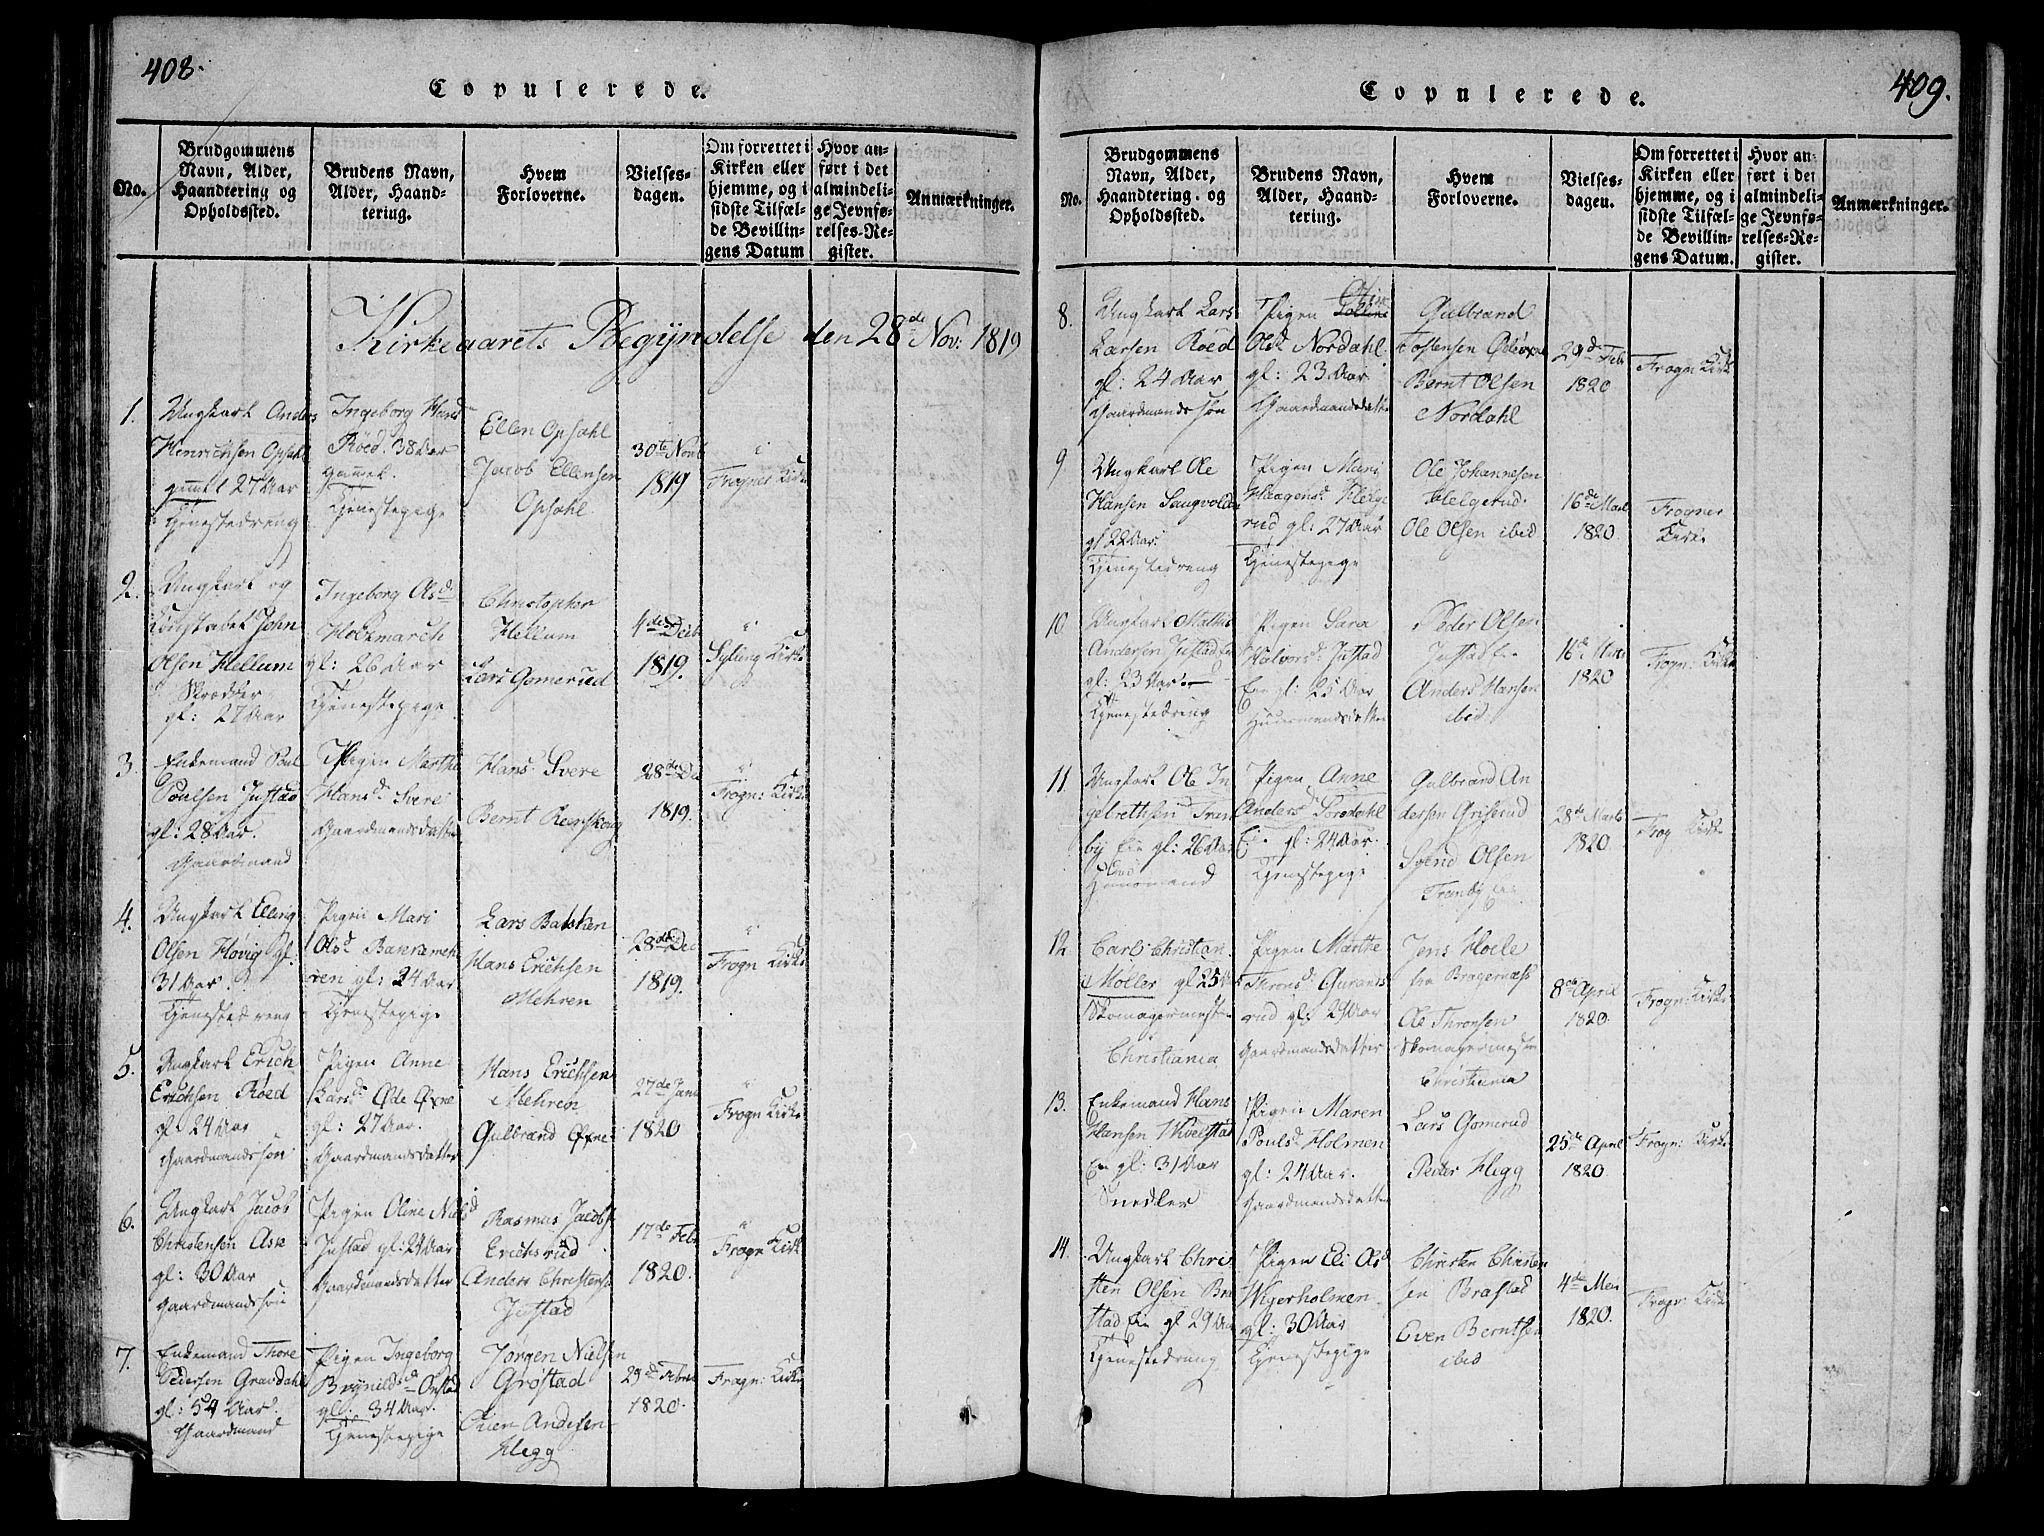 408.
Copulerede.
No.
Brudgommens
Navn, Alder,
Haandtering og
Opholdssted.
Brudens Navn,
Alder, Haand-
tering.
Hvem
Forloverne.
Vielses-
dagen.
Om forrettet i
Kirken eller
hjemme, og i
sidste Tilfæl-
de Bevillin-
gens Datum
Hvor an-
ført i det
almindeli-
ge Jevnfø-
relses-Re-
gister.
Anmærkninger.
Kirkeaarets Begÿndelse den 28de Nov: 1819
1.
Ungkarl Anders
Henrichsen Opsahl
gaml 27 Aar
Tjenestedreng
Ingeborg Hansd
Röed. 38 Aar
gammel.
Tjenestepige
Ellen Opsahl
Jacob Ellensen
Opsahl
30te Novb
1819
i
Frogner Kirke
2.
Ungkarl og
John
Olsen Hellum
Skrædder
gl: 27 Aar
Ingeborg Olsd
Holtzmarch
gl: 26 Aar
Tjenestepige
Christopher
Hellum
Lars Gomerud
4de Decb
1819.
i
Sylling Kirke
3.
Enkemand Poul
Poulsen Justad
gl: 28 Aar.
Gaardmand
Pigen Marthe
Hansd Svere
Gaardmandsdatter
Hans Svere
Bernt Reenskoug
28de Dec
1819.
i
Frogn: Kirke
4.
Ungkarl Elling
Olsen Høvig gl:
31 Aar
Tjenestedreng
Pigen Mari
Olsd
gl: 24 Aar
Tjenestepige
Lars Babschen
Hans Erichsen
Mehren
28de Dec
1819.
i
Frogn Kirke
5.
Ungkarl Erich
Erichsen Röed
gl 24 Aar
Gaardmandssön
Pigen Anne
Larsd Øde Øxne
gl: 27 Aar.
Gaardmandsdatter
Hans Erichsen
Mehren
Gulbrand Øxne
27de Janu
1820
i
Frogn Kirke
6.
Ungkarl Jacob
Christensen Asse
gl: 30 Aar
Gaardmandssön
Pigen Oline Nielsd
Justad gl: 24 Aar
Gaardmandsdatter
Rasmus Jacobs
Erichsrud
Anders Christens
Justad
17de Febr
1820.
i
Frogn Kirke
7.
Enkemand Thore
Pedersen Gravdahl
gl: 54 Aar.
Gaardmand
Pigen Ingeborg
Brynildsd Onstad
gl: 34 Aar.
Tjenestepige
Jørgen Nielsen
Grøstad
Andersen
Hegg
29de Febru
1820.
Frogn: Kirke
409.
Copulerede.
No.
Brudgommens
Navn, Alder,
Haandtering. og
Opholdssted.
Brudens Navn,
Alder, Haand-
tering.
Hvem
Forloverne.
Vielses-
dagen.
Om forrettet i
Kirken eller
hjemme, og i
sidste Tilfæl-
de Bevillin-
gens Datum.
Hvor an-
ført i det
almindeli-
ge Jevnfø-
relses-Re-
gister.
Anmærkninger.
8.
Ungkarl Lars
Larsen Röed
gl: 24 Aar
Gaardmandssön
Pigen
Olsd Nordahl
gl: 23 Aar
Gaardmandsdatter
Gulbrand
Tostensen Ødeøxne
Bernt Olsen
Nordahl
29de Feb
1820
Frogn: Kirk
9
Ungkarl Ole
Hansen Saugvolden
gl 22 Aar.
Tjenestedreng
Pigen Mari
Haagensd Helge
rud gl: 27 Aar
Tjenestepige
Ole Johannesen
Helgerud.
Ole Olsen ibid
16de Marts
1820
Frogner
Kirke
10.
Ungkarl Mathis
Andersen Justad Eie
gl: 23 Aar.
Tjenestedreng
Pigen Sara
Halvorsd Justad
Eie gl: 25 Aar
Huusmandsdatter
Peder Olsen
Justad Eie
Anders Hansen
ibid
16de Marts
1820
Frogn: Kirke
11.
Ungkarl Ole In
gebrethsen Tran
by Eie gl: 26 Aar
Huusmand
Pigen Anne
Andersd Sørsdahl
Eie gl: 24 Aar.
Tjenestepige
Gulbrand An
dersen Griserud
Svend Olsen
Tranby Eie
28de Marts
1820.
Frog Kirke
12.
Carl Christian
Møller gl 25 A
Skomagermester
Christiania
Pigen Marthe
Thronsd: Gurands
rud gl: 29 Aar
Gaardmandsdatter
Jens Hoele
fra Bragernæss
Ole Thronsen
Skomagermester
Christiania
8de April
1820.
Frogn: Kirke
13.
Enkemand Hans
Hansen
Eie gl: 31 Aar
Snedker
Pigen Maren
Poulsd Holmen
gl: 24 Aar.
Gaardmandsdatter
Lars Gomerud
Peder Hegg
25de April
1820.
Frogn: Kirke
14.
Ungkarl Chris
ten Olsen Bra
stad Eie gl 29 Aar
Tjenestedreng
Pigen Eli Olsd
Wigerholmen
gl: 30 Aar
Tjenestepige
Christen Christen
sen Brastad
Even Berntsen
ibid
4de Mai
1820.
Frogn: Kirke